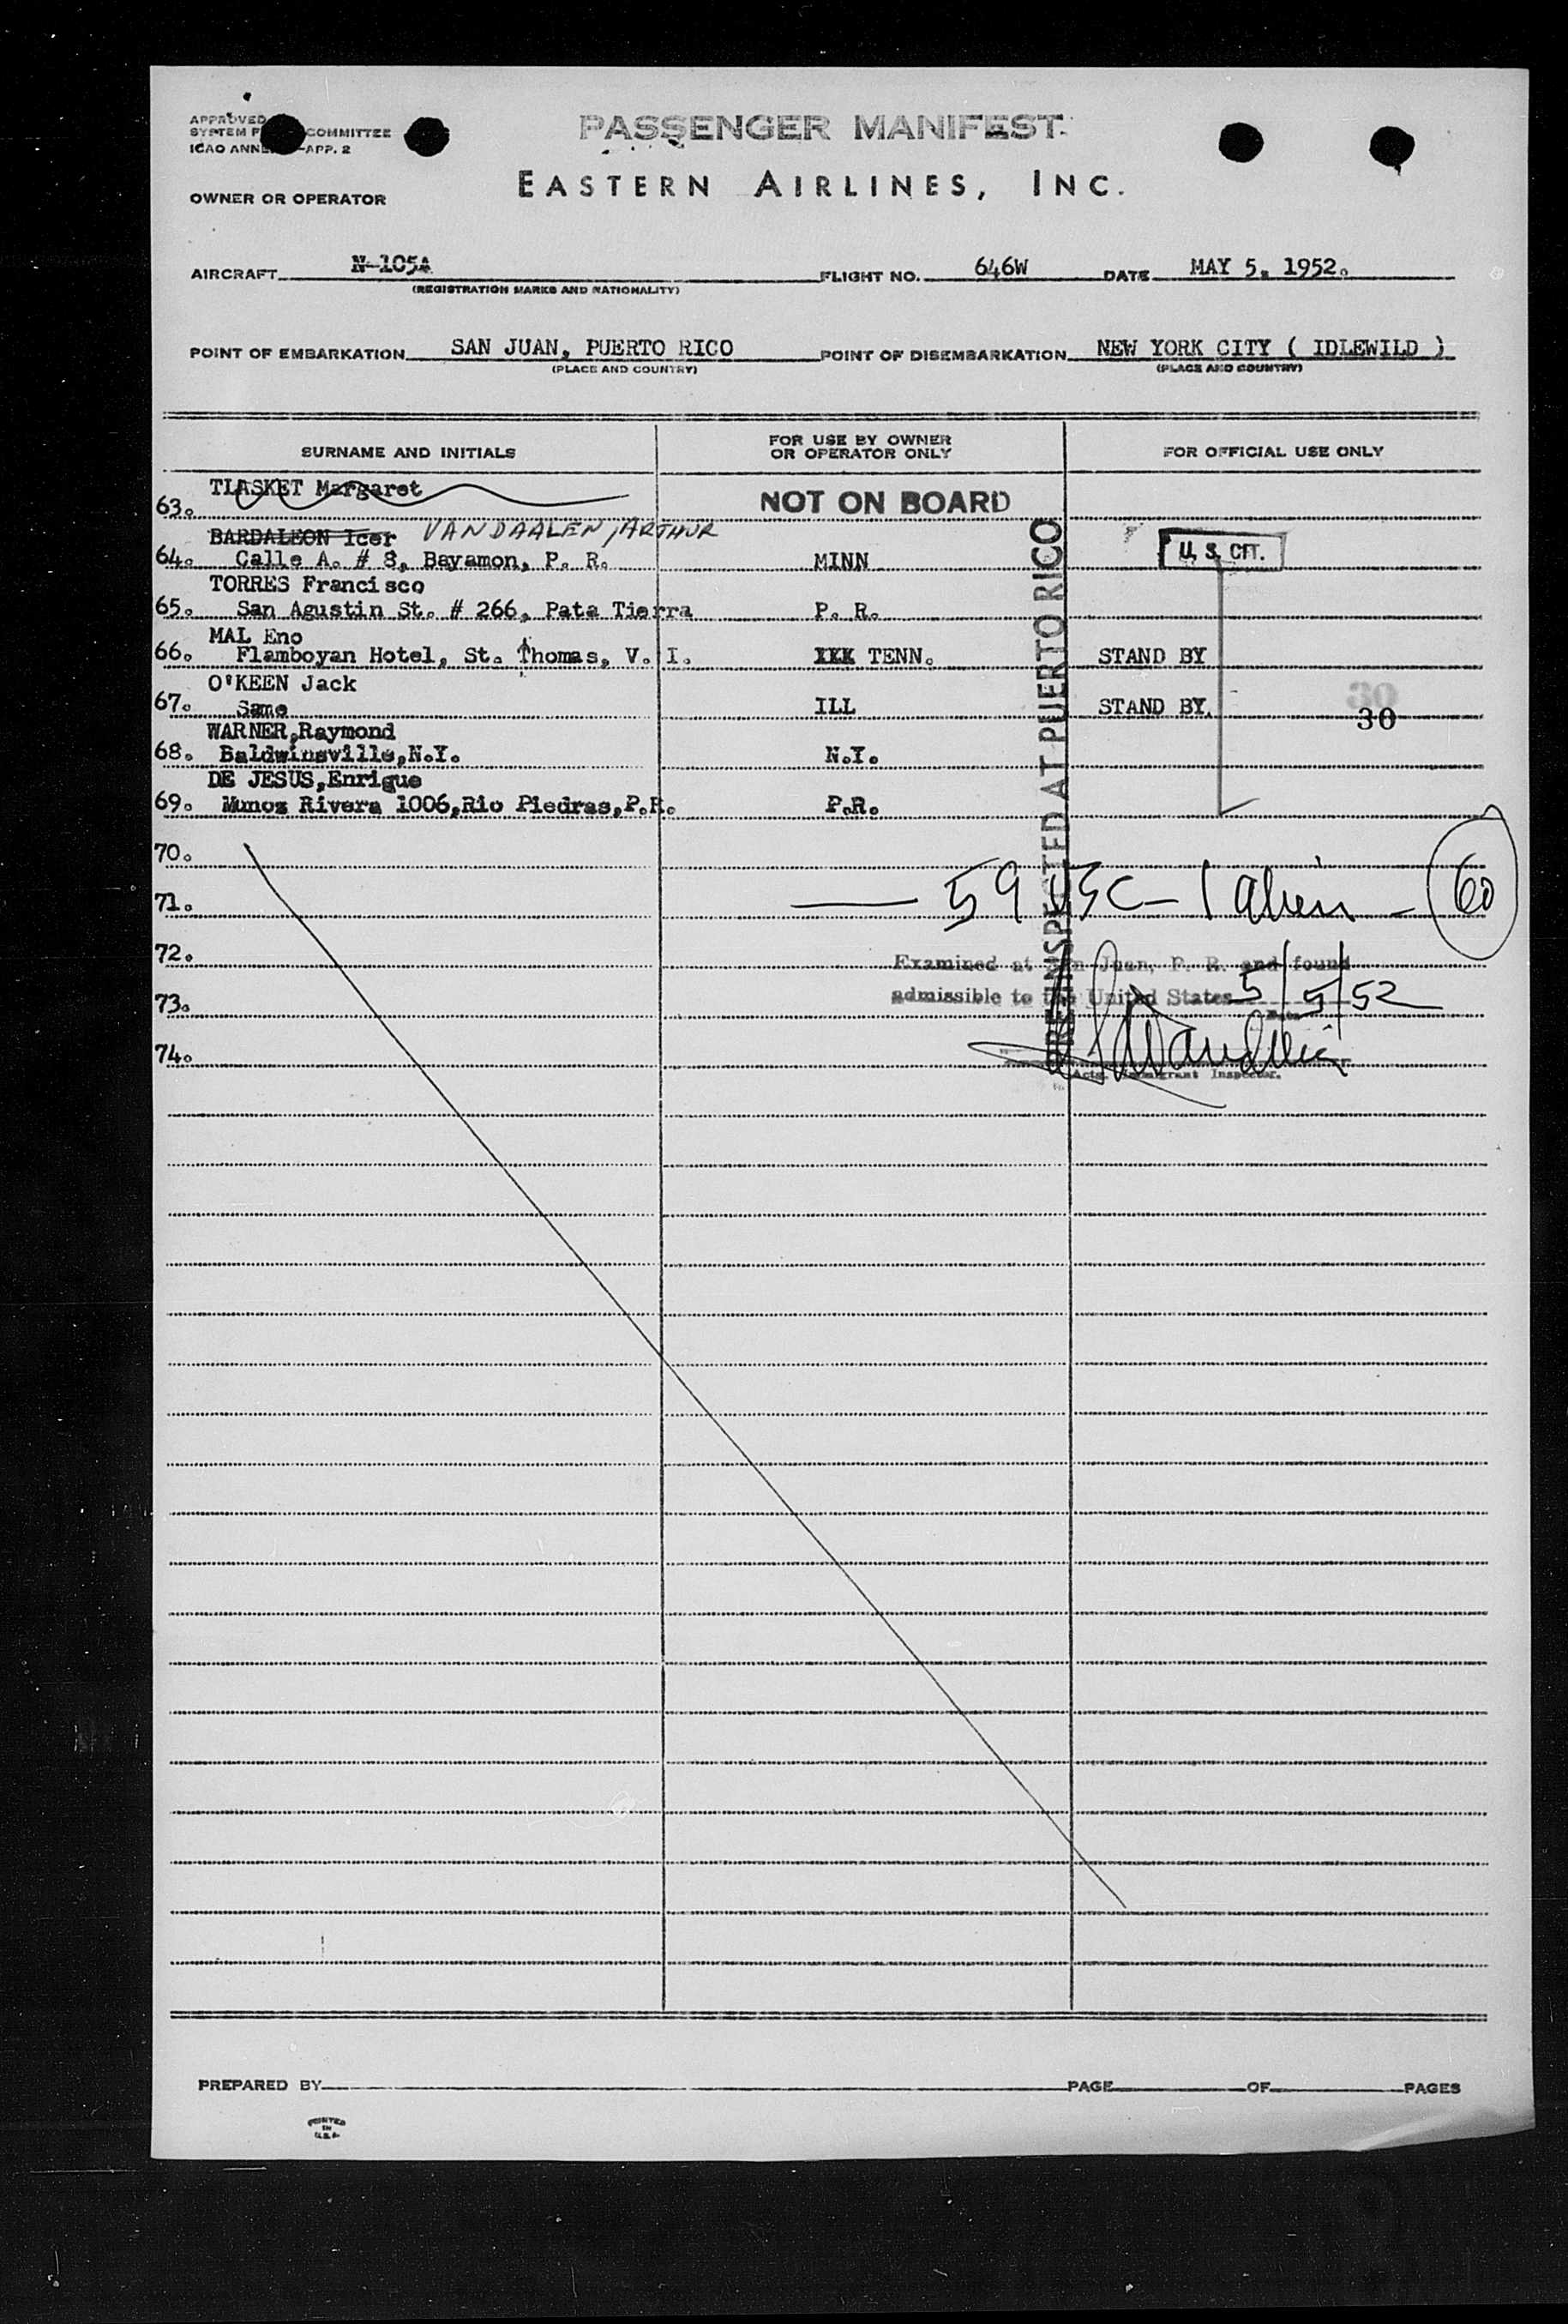 APPROVED
SYSTEM COMMITTEE
ICAO APP. 2
PASSENGER MANIFEST
EASTERN AIRLINES, INC.
OWNER OR OPERATOR
AIRCRAFT N-105A FLIGHT NO. 646W DATE MAY 5, 1952.
(REGISTRATION MARKS AND NATIONALITY)
POINT OF EMBARKATION SAN JUAN, PUERTO RICO POINT OF DISEMBARKATION NEW YORK CITY ( IDLEWILD )
(PLACE AND COUNTRY) (PLACE AND COUNTRY)
SURNAME AND INITIALS FOR USE BY OWNER OR OPERATOR ONLY FOR OFFICIAL USE ONLY
TLASKET Margaret
63. NOT ON BOARD
BARDALEON Icer VANDAALEN, ARTHUR
64. Calle A. # 8, Bayamon, P. R. MINN U. S. CIT.
TORRES Francisco
65. San Agustin St. # 266, Pata Tierra P. R.
MAL Eno
66. Flamboyan Hotel, St. Thomas, V. I. XXX TENN. STAND BY
O'KEEN Jack
67. Same ILL STAND BY. 30
30
WARNER,Raymond
68. Baldwinsville,N.Y. N.Y.
DE JESUS,Enrigue
69. Munoz Rivera 1006,Rio Piedras,P.R. P.R.
PREINSPECTED AT PUERTO RICO
70.
71. — 59 USC - 1 alien - 60
72. Examined at San Juan, P. R. and found
73. admissible to the United States 5/5/52
Date
74.
Immigrant Inspector.
PREPARED BY PAGE OF PAGES
PRINTED
IN
U.S.A.